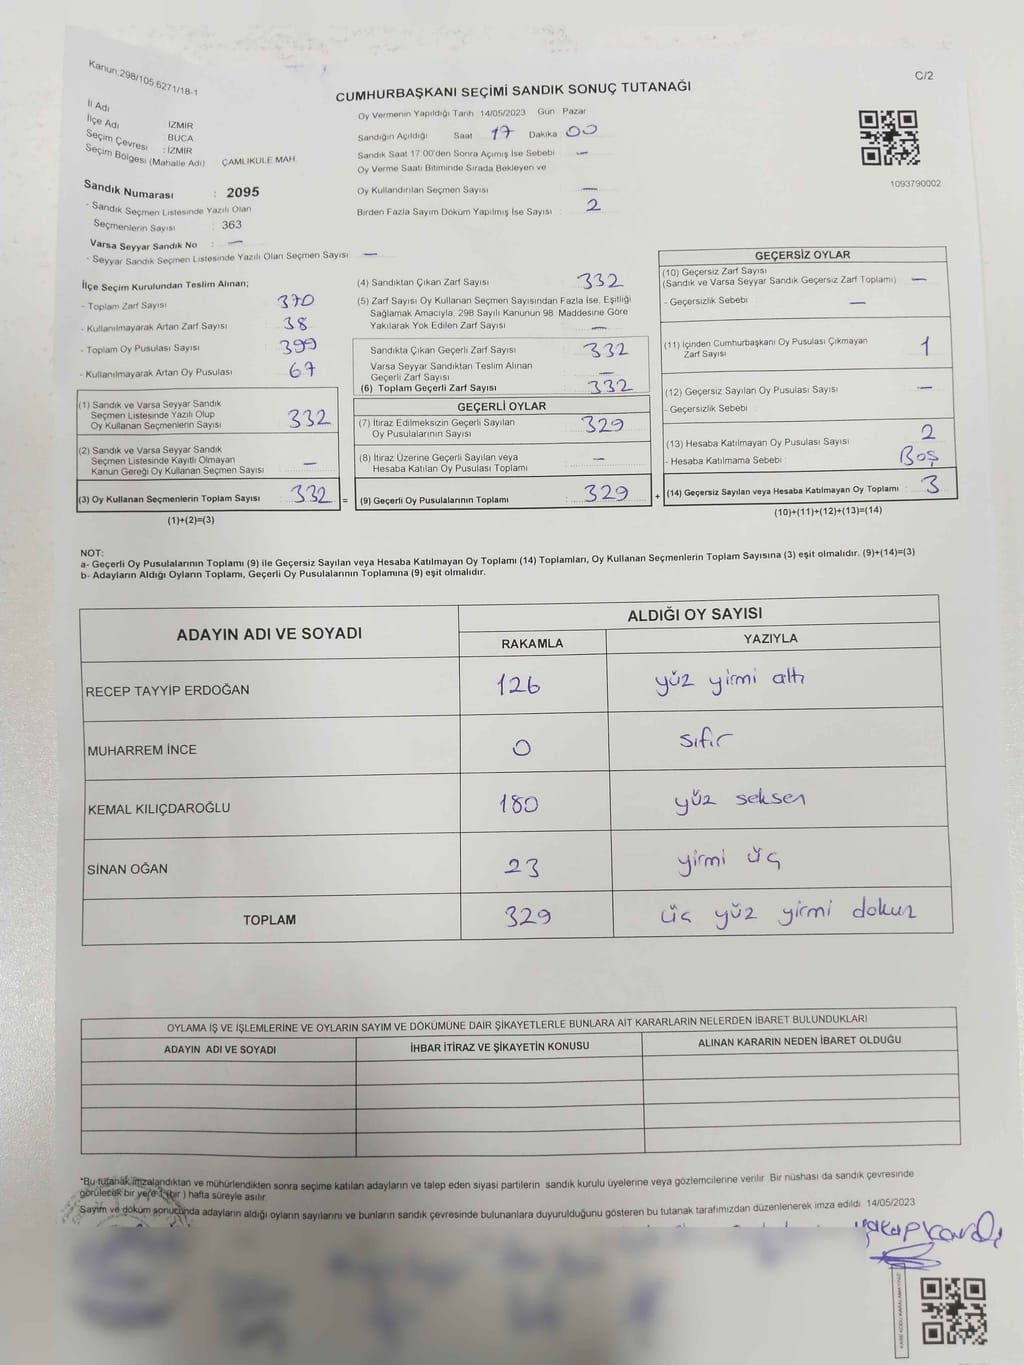 Kanun,298/105,6271/18-1
C/2
CUMHURBAŞKANI SEÇİMİ SANDIK SONUÇ TUTANAĞI
İl Adı : İZMİR
İlçe Adı : BUCA
Seçim Çevresi : İZMİR
Seçim Bölgesi (Mahalle Adı) ÇAMLIKULE MAH
Sandık Numarası : 2095
- Sandık Seçmen Listesinde Yazılı Olan
Seçmenlerin Sayısı : 363
Varsa Seyyar Sandık No : —
- Seyyar Sandık Seçmen Listesinde Yazılı Olan Seçmen Sayısı —
Oy Vermenin Yapıldığı Tarih 14/05/2023 Gün Pazar
Sandığın Açıldığı Saat 17 Dakika 00
Sandık Saat 17:00'den Sonra Açımış İse Sebebi —
Oy Verme Saati Bitiminde Sırada Bekleyen ve
Oy Kullandırılan Seçmen Sayısı —
Birden Fazla Sayım Döküm Yapılmış İse Sayısı : 2
1093790002
İlçe Seçim Kurulundan Teslim Alınan;
- Toplam Zarf Sayısı 370
- Kullanılmayarak Artan Zarf Sayısı 38
- Toplam Oy Pusulası Sayısı 399
- Kullanılmayarak Artan Oy Pusulası 67
(1) Sandık ve Varsa Seyyar Sandık
Seçmen Listesinde Yazılı Olup
Oy Kullanan Seçmenlerin Sayısı 332
(2) Sandık ve Varsa Seyyar Sandık
Seçmen Listesinde Kayıtlı Olmayan
Kanun Gereği Oy Kullanan Seçmen Sayısı —
(3) Oy Kullanan Seçmenlerin Toplam Sayısı 332 =
(1)+(2)=(3)
(4) Sandıktan Çıkan Zarf Sayısı 332
(5) Zarf Sayısı Oy Kullanan Seçmen Sayısından Fazla İse, Eşitliği
Sağlamak Amacıyla, 298 Sayılı Kanunun 98. Maddesine Göre
Yakılarak Yok Edilen Zarf Sayısı —
Sandıkta Çıkan Geçerli Zarf Sayısı 332
Varsa Seyyar Sandıktan Teslim Alınan
Geçerli Zarf Sayısı —
(6) Toplam Geçerli Zarf Sayısı 332
GEÇERLİ OYLAR
(7) İtiraz Edilmeksizin Geçerli Sayılan
Oy Pusulalarının Sayısı 329
(8) İtiraz Üzerine Geçerli Sayılan veya
Hesaba Katılan Oy Pusulası Toplamı —
(9) Geçerli Oy Pusulalarının Toplamı : 329 +
GEÇERSİZ OYLAR
(10) Geçersiz Zarf Sayısı
(Sandık ve Varsa Seyyar Sandık Geçersiz Zarf Toplamı) —
- Geçersizlik Sebebi —
(11) İçinden Cumhurbaşkanı Oy Pusulası Çıkmayan
Zarf Sayısı 1
(12) Geçersiz Sayılan Oy Pusulası Sayısı —
- Geçersizlik Sebebi
(13) Hesaba Katılmayan Oy Pusulası Sayısı 2
- Hesaba Katılmama Sebebi : Boş
(14) Geçersiz Sayılan veya Hesaba Katılmayan Oy Toplamı : 3
(10)+(11)+(12)+(13)=(14)
NOT:
a- Geçerli Oy Pusulalarının Toplamı (9) ile Geçersiz Sayılan veya Hesaba Katılmayan Oy Toplamı (14) Toplamları, Oy Kullanan Seçmenlerin Toplam Sayısına (3) eşit olmalıdır. (9)+(14)=(3)
b- Adayların Aldığı Oyların Toplamı, Geçerli Oy Pusulalarının Toplamına (9) eşit olmalıdır.
ADAYIN ADI VE SOYADI
ALDIĞI OY SAYISI
RAKAMLA YAZIYLA
RECEP TAYYİP ERDOĞAN 126 yüz yirmi altı
MUHARREM İNCE 0 sıfır
KEMAL KILIÇDAROĞLU 180 yüz seksen
SİNAN OĞAN 23 yirmi üç
TOPLAM 329 üç yüz yirmi dokuz
OYLAMA İŞ VE İŞLEMLERİNE VE OYLARIN SAYIM VE DÖKÜMÜNE DAİR ŞİKAYETLERLE BUNLARA AİT KARARLARIN NELERDEN İBARET BULUNDUKLARI
ADAYIN ADI VE SOYADI İHBAR İTİRAZ VE ŞİKAYETİN KONUSU ALINAN KARARIN NEDEN İBARET OLDUĞU
"Bu tutanak imzalandıktan ve mühürlendikten sonra seçime katılan adayların ve talep eden siyasi partilerin sandık kurulu üyelerine veya gözlemcilerine verilir. Bir nüshası da sandık çevresinde
görülecek bir yere 1 (bir) hafta süreyle asılır.
Sayım ve döküm sonucunda adayların aldığı oyların sayılarını ve bunların sandık çevresinde bulunanlara duyurulduğunu gösteren bu tutanak tarafımızdan düzenlenerek imza edildi. 14/05/2023